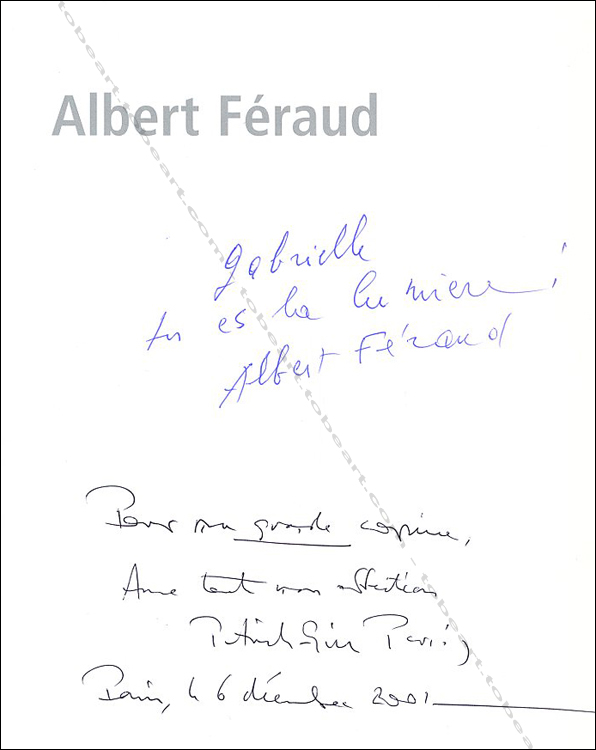 Albert Féraud
gabrielle
tu es la lumière !
Albert Féraud
Pour ma grande copine,
Avec tout mon affection
Patrick-Gilles Persin
Paris, le 6 décembre 2001
www.tobeart.com - tobeart.com - tobeart.com